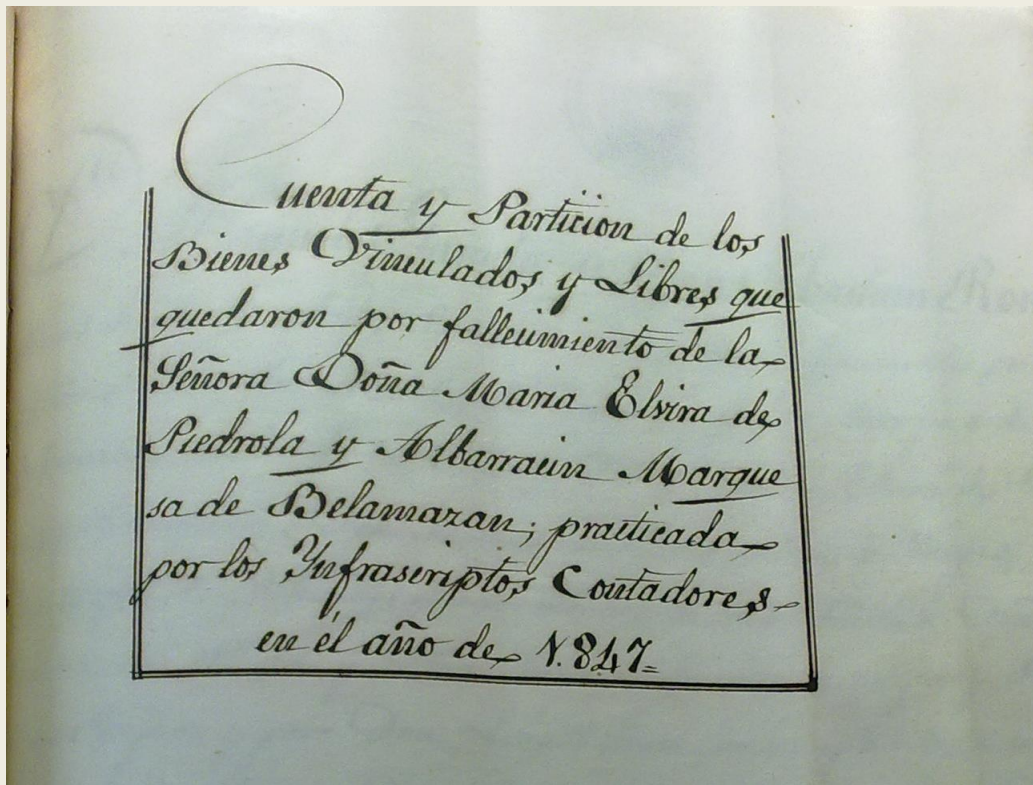 Cuenta y Particion de los
Bienes Vinculados y Libres que
quedaron por fallecimiento de la
Señora Doña Maria Elvira de
Piedrola y Albarracin Marque
sa de Belamazan; practicada
por los Ynfrascriptos Contadores
en él año de 1.847=